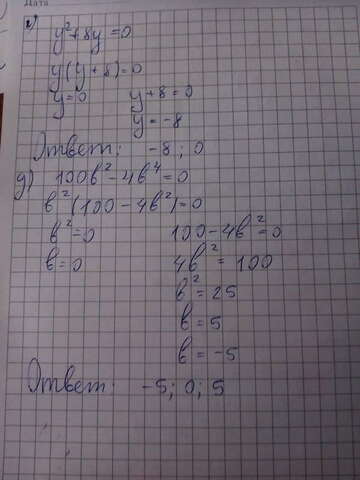 Дата
г)
y²+8y=0
y(y+8)=0
y=0 y+8=0
y=-8
Ответ: -8; 0
д) 100b²-4b⁴=0
b²(100-4b²)=0
b²=0 100-4b²=0
b=0 4b²=100
b²=25
b=5
b=-5
Ответ: -5; 0; 5